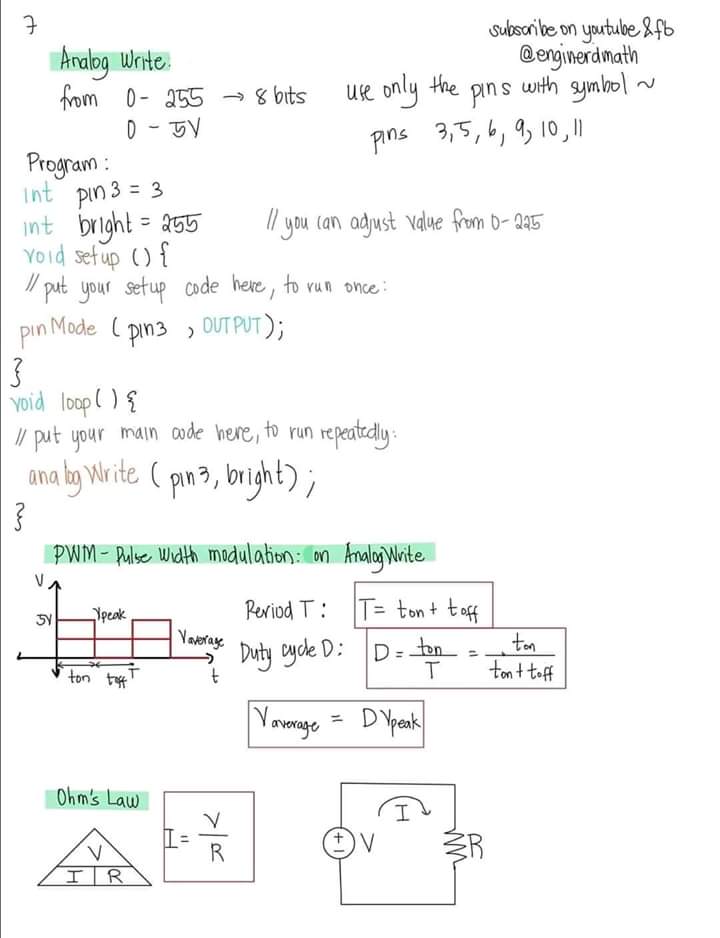 7
subscribe on youtube & fb
@enginerdmath
Analog Write.
from 0 - 255 → 8 bits
0 - 5V
use only the pins with symbol ~
pins 3,5,6,9,10,11
Program:
int pin3 = 3
int bright = 255 // you can adjust value from 0-225
void setup () {
// put your setup code here, to run once:
pinMode (pin3 , OUTPUT);
}
void loop() {
// put your main code here, to run repeatedly:
analogWrite (pin3, bright);
}
PWM - Pulse Width modulation: on AnalogWrite
V
5V
Vpeak
Vaverage
ton toff T t
Period T: T = ton + toff
Duty cycle D: D = ton / T = ton / ton + toff
Vaverage = D Vpeak
Ohm's Law
V
I R
I = V / R
I
+ - V
R